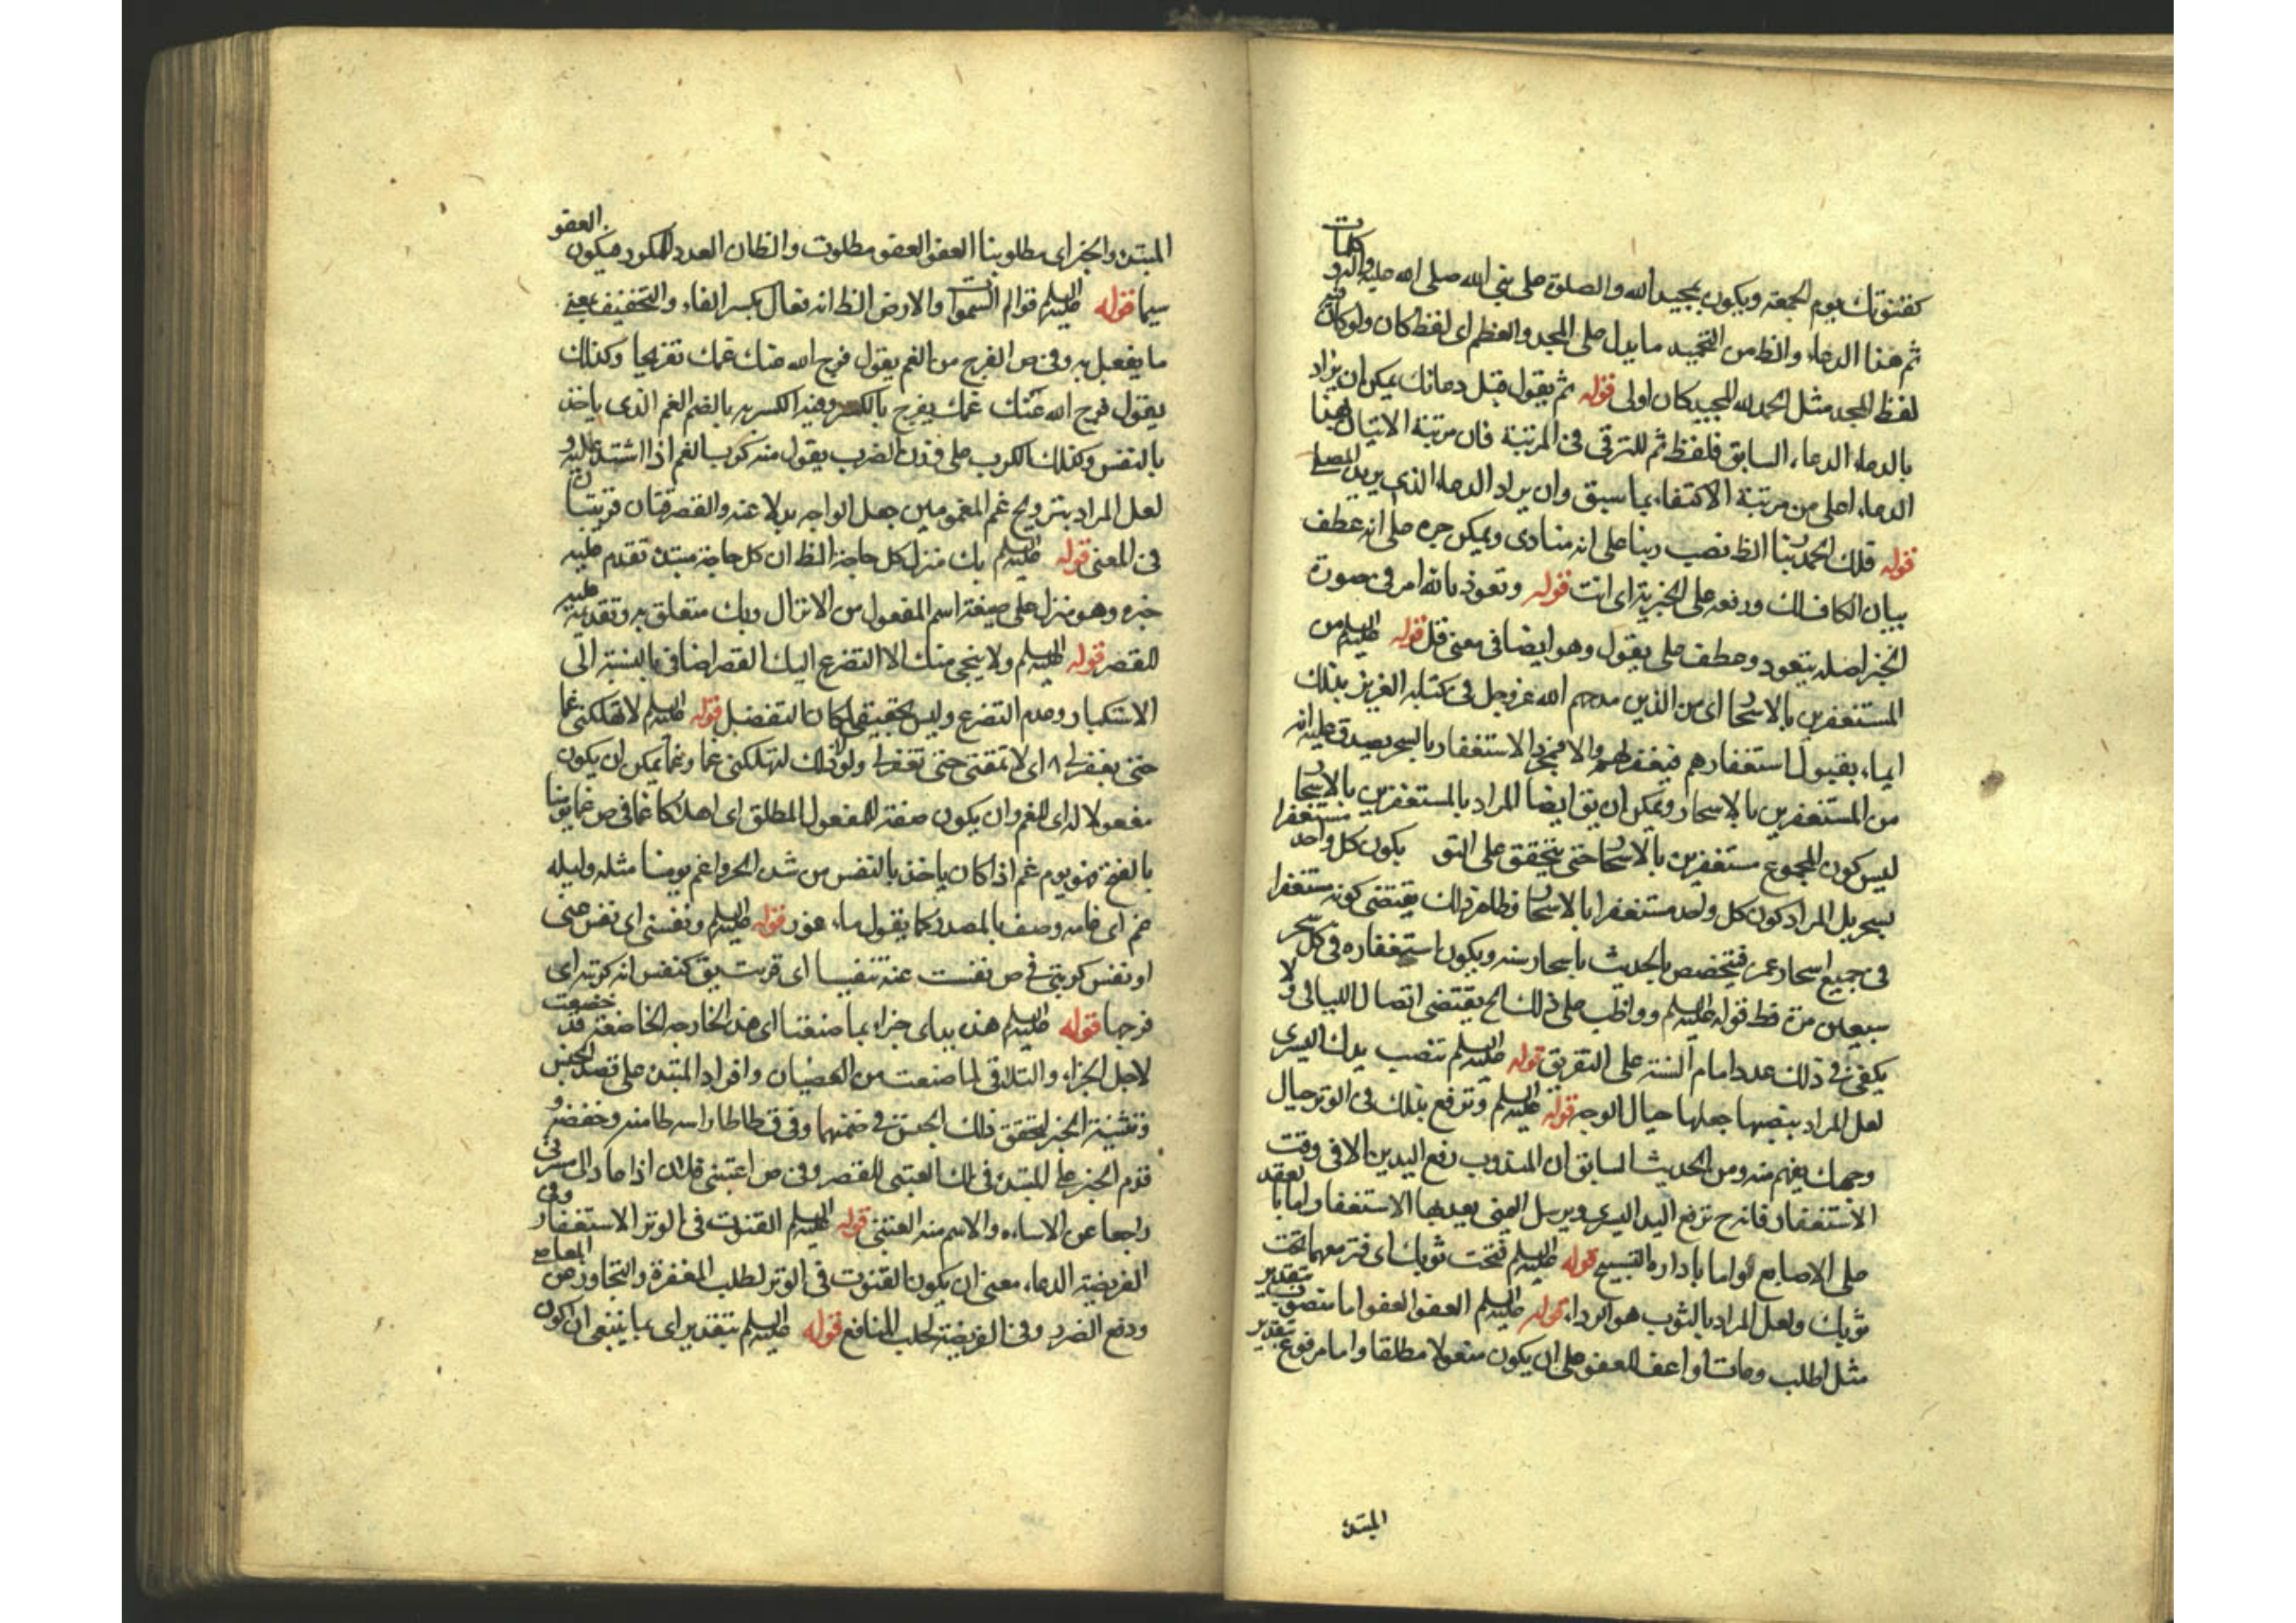 كقنوتك يوم الجمعة ويكون تمجيد الله والصلوة على نبي الله صلى الله عليه وآله و كلمات
ثم هذا الدعاء والظ من التحميد ما يدل على المجد والعظم اى لفظ كان ولو كان فيه
لفظ المجد مثل الحمد لله المجيد كان اولى قوله ثم يقول قبل دعائك يمكن ان يراد
بالدعاء الدعاء السابق فلفظ ثم للترقى فى المرتبة فان مرتبة الاتيان بهذا
الدعاء اعلى من مرتبة الاكتفاء بما سبق وان يراد الدعاء الذى يريد المصلى
قوله فلك الحمد ربنا الظ نصب ربنا على انه منادى ويمكن جره على انه عطف
بيان الكاف لك ورفعه على الخبرية اى انت قوله وتعوذ بالله امر فى صورة
الخبر اصله يتعوذ وعطف على يقول وهو ايضا فى معنى قل قوله عليه السلم من
المستغفرين بالاسحار اى من الذين مدحهم الله عز وجل فى كتابه العزيز بذلك
ايماء بقبول استغفارهم فيغفر لهم والا فبمجرد الاستغفار بالسحر يصدق عليه انه
من المستغفرين بالاسحار ويمكن ان يق ايضا المراد بالمستغفرين بالاسحار
ليس كون المجموع مستغفرين بالاسحار حتى يتحقق على التو يكون كل واحد مستغفرا
بسحر بل المراد كون كل واحد مستغفرا بالاسحار وظاهر ذلك يقتضى كونه مستغفرا
فى جميع اسحار عمره فتخصص بالحديث باسحار سنه ويكون استغفاره فى كل سحر
سبعين مرة قط قوله عليه السلم وواظب على ذلك الخ يقتضى اتصال الليالى ولا
يكفى فى ذلك عدد ايام السنة على التفريق قوله عليه السلم تنصب يدك اليسرى
لعل المراد بنصبها جعلها حيال الوجه قوله عليه السلم وترفع يديك فى الوتر حيال
وجهك يفهم منه ومن الحديث السابق ان المندوب رفع اليدين الا فى وقت
الاستغفار فانه ح ترفع اليد اليسرى ويرسل اليمنى يعد بها الاستغفار اما بالعقد
على الاصابع او اما بادارة التسبيح قوله عليه السلم فتحت ثوبك اى فترفعهما تحت
ثوبك ولعل المراد بالثوب هو الرداء قوله عليه السلم العفو العفو اما منصوب بتقدير
مثل اطلب وهات او اعف العفو على ان يكون مفعولا مطلقا واما مرفوع بتقدير
المبتدء
المبتدء والخبر اى مطلوبنا العفو العفو مطلوب والظ ان العدد المكرر فيكون العفو
سيما قوله عليه السلم قوام السموات والارض الظ انه فعال بكسر الفاء والتخفيف بمعنى
ما يفعل به وفى ص الفرج من الغم يقول فرج الله عنك غمك تفريجا وكذلك
يقول فرج الله عنك غمك يفرج بالكسر وفيه الكربة بالضم الغم الذى ياخذ
بالنفس وكذلك الكرب على وزن الضرب يقول منه كربه الغم اذا اشتد عليه و
لعل المراد بترويح غم المغمومين جعل الراحة بدلا عنه والفقرتان قريبتان
فى المعنى قوله عليه السلم بك منزل كل حاجة الظ ان كل حاجة مبتدء تقدم عليه
خبره وهو منزل على صيغة اسم المفعول من الانزال وبك متعلق به وتقديمه عليه
للقصر قوله عليه السلم ولا ينجى منك الا التضرع اليك القصر اضافى بالنسبة الى
الاستكبار وعدم التضرع وليس بحقيقى لمكان التفضل قوله عليه السلم لا تهلكنى غما
حتى تغفر لى اى لا تمقتنى حتى تغفر لى ولولا ذلك لتهلكنى غما وغما يمكن ان يكون
مفعولا له اى للغم وان يكون صفة للمفعول المطلق اى اهلاكا غما فى ص غم يومنا
بالفتح فهو يوم غم اذا كان ياخذ بالنفس من شدة الحر واغم يومنا مثله وليلة
غم اى غامة وصف بالمصدر كما يقول ماء غور قوله عليه السلم ونفسنى اى نفس عنى
او نفس كربتى فى ص نفست عنه تنفيسا اى فرجت يق نفس الله كربته اى
فرجها قوله عليه السلم هذه يداى جزاء بما صنعتا اى هذه الجارحة الخاضعة قد خضعت
لاجل الجزاء والتلافى لما صنعت من العصيان وافراد المبتدء على قصد الجنس
وتثنية الخبر لتحقق ذلك الجنس فى ضمنهما وفى ق طاطا راسه طامنه وخفضه و
قدم الخبر على المبتدء فى لك العتبى للقصر وفى ص اعتبنى فلان اذا عاد الى مسرتى
راجعا عن الاساءه والاسم منه العتبى قوله عليه السلم القنوت فى الوتر الاستغفار وفى
الفريضة الدعاء معنى ان يكون القنوت فى الوتر لطلب المغفرة والتجاوز عن المعاصى
ودفع الضرر وفى الفريضة لجلب المنافع قوله عليه السلم بتقدير اى بما ينبغى ان يكون